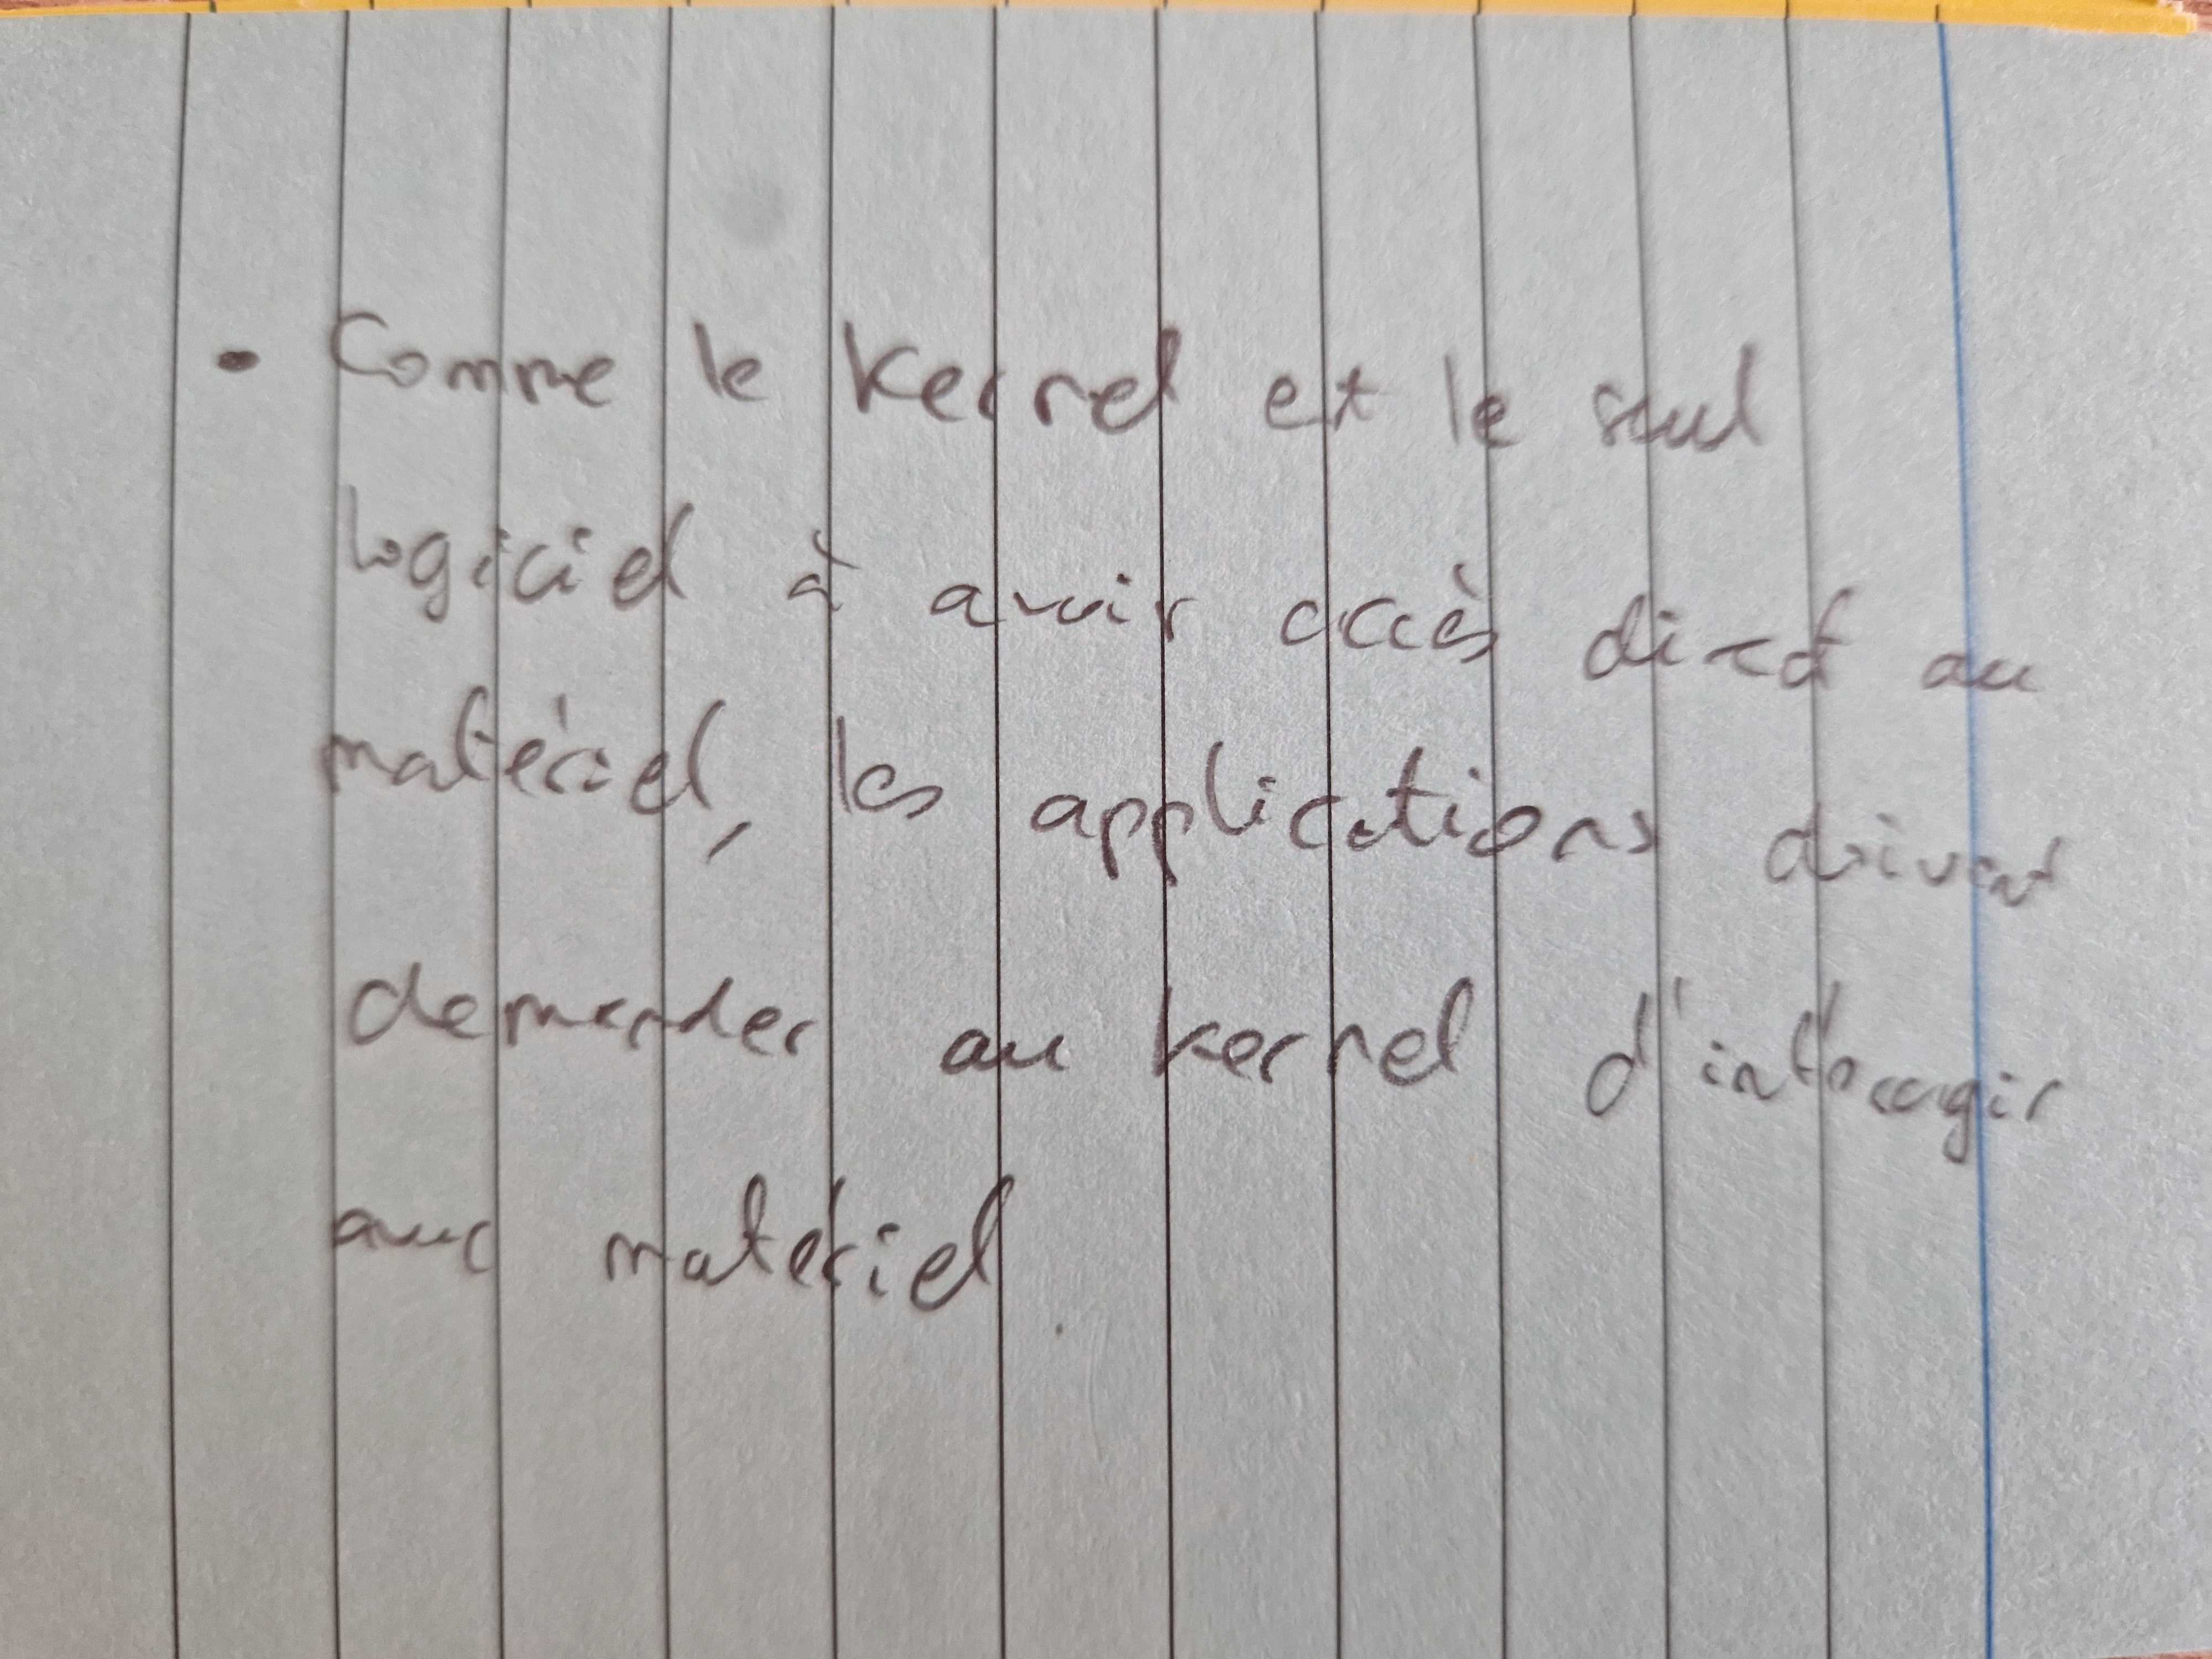 • Comme le kernel et le seul
logiciel à avoir accès direct au
matériel, les applications doivent
demander au kernel d'interagir
avec matériel.